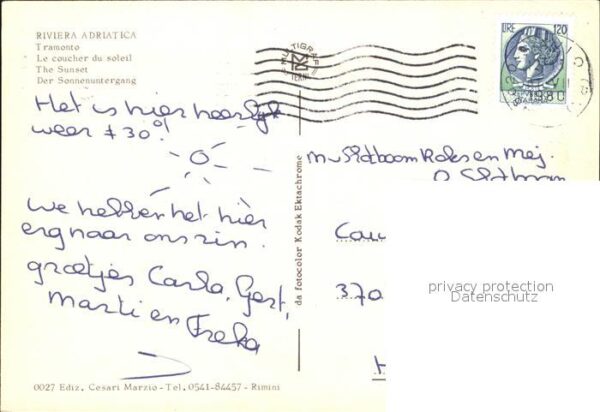 RIVIERA ADRIATICA
Tramonto
Le coucher du soleil
The Sunset
Der Sonnenuntergang
Het is hier heerlijk
weer ± 30°!
we hebben het hier
erg naar ons zin.
groetjes Carla, Gert,
Marti en Freka
da fotocolor Kodak Ektachrome
LIRE 120
1980
en Mej.
370
privacy protection
Datenschutz
0027 Ediz. Cesari Marzio - Tel. 0541-84457 - Rimini